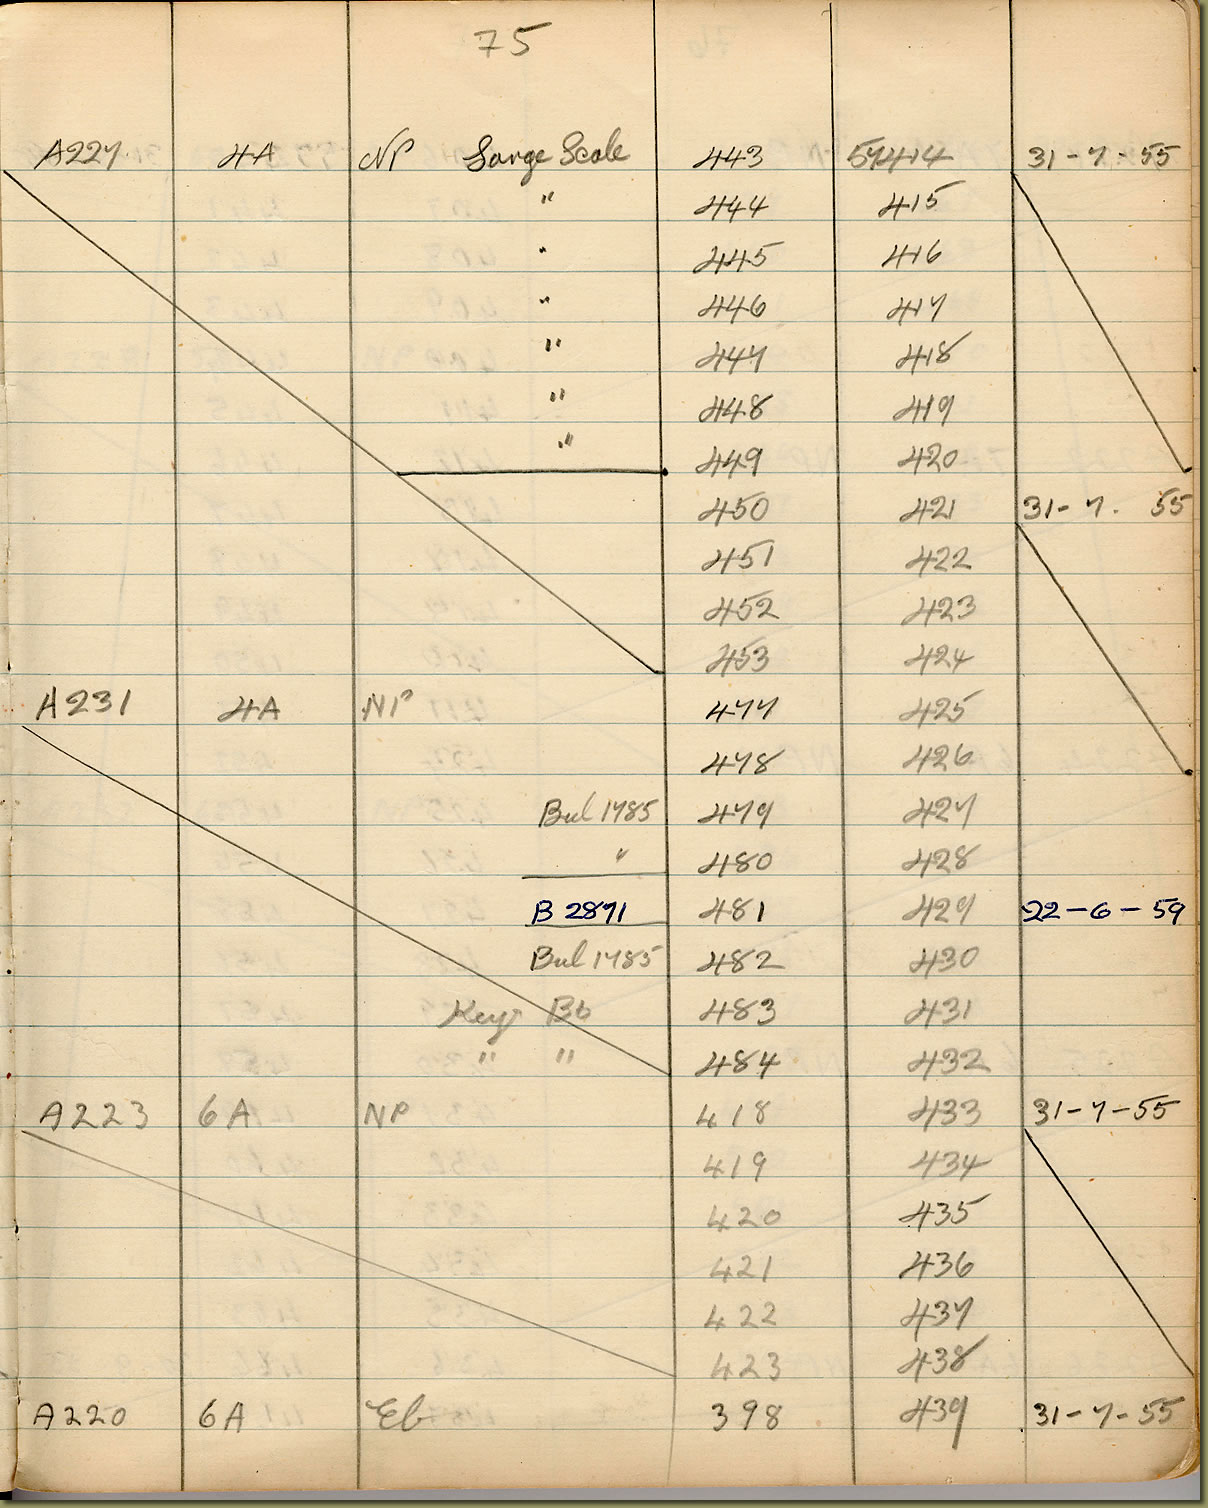 75
A227. 4A NP Large Scale 443 57414 31-7-55
" 444 415
" 445 416
" 446 417
" 447 418
" 448 419
" 449 420
450 421 31-7. 55
451 422
452 423
453 424
A231 4A NP 477 425
478 426
Bul 1785 479 427
" 480 428
B 2871 481 429 22-6-59
Bul 1785 482 430
Key Bb 483 431
" " 484 432
A223 6A NP 418 433 31-7-55
419 434
420 435
421 436
422 437
423 438
A220 6A Eb 398 439 31-7-55